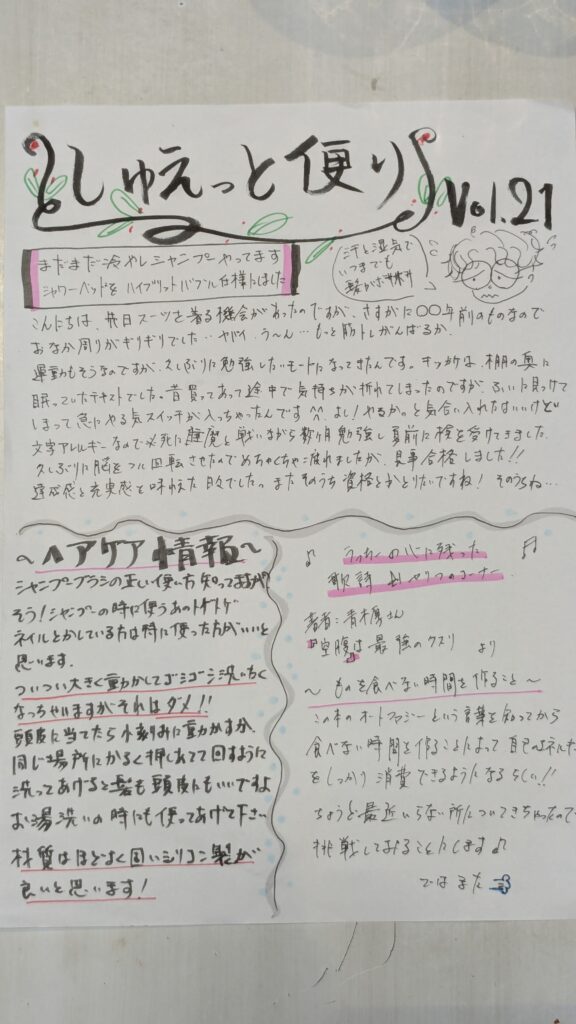 しゅえっと便り Vol.21
まだまだ冷やしシャンプーやってます
シャワーヘッドをハイブリットバブル仕様にしました
汗と湿気で
いつまでも
髪がボサボサ
こんにちは、先日スーツを着る機会があったのですが、さすがに〇〇年前のものなので
おなか周りがギリギリでした…ヤバイ、う〜ん…もっと筋トレがんばるか、
運動もそうなのですが、久しぶりに勉強したいモードになってきたんです。きっかけは、棚の奥に
眠っていたテキストでした。昔買ってあって途中で気持ちが折れてしまったのですが、ふいに見つけて
しまって急にやる気スイッチが入っちゃったんです^^、よし!やるか。と気合い入れたはいいけど
文字アレルギーなので必死に睡魔と戦いながら数か月勉強し夏前に検を受けてきました。
久しぶりに脳をフル回転させたのでめちゃくちゃ疲れましたが、見事合格しました!!
達成感と充実感を味わえた日々でした。またそのうち資格とかとりたいですね!そのうちね…
〜ヘアケア情報〜
シャンプーブラシの正しい使い方知ってますか?
そう!シャンプーの時に使うあのトゲトゲ
ネイルとかしている方は特に使った方がいいと
思います。
ついつい大きく動かしてゴシゴシ洗いたく
なっちゃいますがそれはダメ!!
頭皮に当てたら小刻みに動かすか、
同じ場所にかるく押しあてて回すように
洗ってあげると髪も頭皮にもいいですよ
お湯洗いの時にも使ってあげて下さい
材質はほどよく固いシリコン製が
良いと思います!
♪ の心に残った ♬
歌詞 セリフのコーナー
著者:青木厚さん
『空腹』は最強のクスリ より
〜ものを食べない時間を作ること〜
この本のオートファジーという言葉を知ってから
食べない時間を作ることによって自己エネルギー
をしっかり消費できるようになるらしい!!
ちょうど最近いらない所についてきちゃったので
挑戦しておることにします♪
ではまた